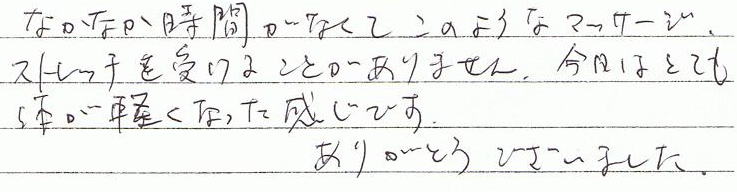 なかなか時間がなくてこのようなマッサージ、
ストレッチを受けることがありません。今日はとても
体が軽くなった感じです。
ありがとうございました。